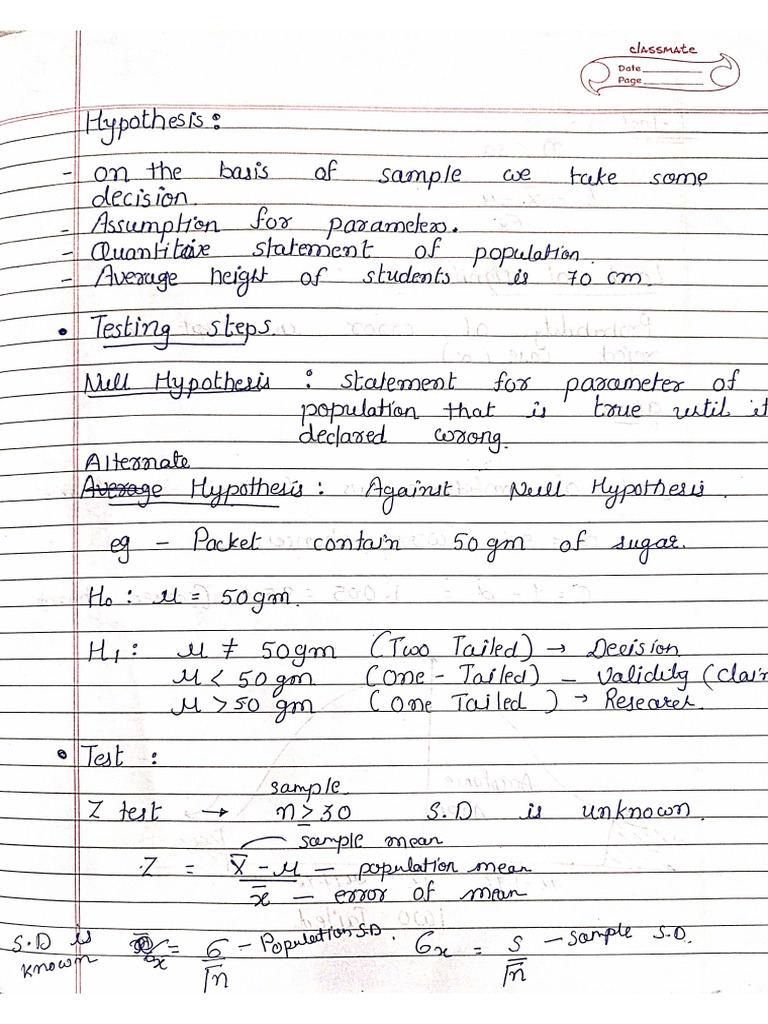 classmate
Date
Page
Hypothesis :
- on the basis of sample we take some
decision.
- Assumption for parameters.
- Quantitaive statement of population.
- Average height of students is 70 cm.
• Testing steps.
Null Hypothesis : statement for parameter of
population that is true until it
declared wrong.
Alternate
Average Hypothesis : Against Null Hypothesis.
eg - Packet contain 50 gm of sugar.
H₀ : μ = 50 gm.
H₁ : μ ≠ 50 gm (Two Tailed) → Decision
μ < 50 gm (one - Tailed) - validity (claim
μ > 50 gm (one Tailed ) → Researcher.
• Test :
sample
Z test → n ≥ 30 S.D is unknown.
sample mean
Z = x̄ - μ - population mean
x̄ - error of mean
S.D is known σx = σ/√n - Population S.D. σx = s/√n - sample S.D.